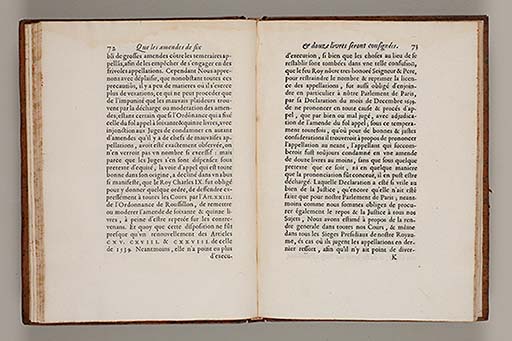 72 Que les amendes de six
bli de grosses amendes côtre les temeraires ap-
pellās, afin de les empêcher de s'engager en des
frivoles appellations. Cependant Nous appre-
nons avec déplaisir, que nonobstant toutes ces
precautiōs, il y a peu de matieres où il s'exerce
plus de vexations, ce qui ne peut proceder que
de l'impunité que les mauvais plaideurs trou-
vent par la décharge ou moderation des amen-
des, estant certain que si l'Ordonance qui a fixé
celle du fol appel à soixante & quinze livres, avec
injonction aux Juges de condamner en autant
d'amendes qu'il y a de chefs de mauvaises ap-
pellations, avoit esté exactement observée, on
n'en verroit pas un nombre si excessif : mais
parce que les Juges s'en font dispensés sous
pretexte d'equité, la voie d'appel qui est toute
bonne dans son origine, a decliné dans un abus
si manifeste, que le Roy Charles IX. fut obligé
pour y donner quelque ordre, de deffendre ex-
pressément à toutes les Cours par l'Art.XXIII.
de l'Ordonance de Roussillon, de remettre
ou moderer l'amende de soixante & quinze li-
vres, à peine d'estre repetée sur les contre-
venans. Et quoy que cette disposition ne fût
presque qu'un renouvellement des Articles
CXV. CXVIII. & CXXVIII. de celle
de 1539. Neantmoins, elle n'a point eu plus
d'execu-
& douze livres seront consignées. 73
d'execution, si bien que les choses au lieu de se
restablir sont tombées dans une telle confusion,
que le feu Roy nôtre tres honoré Seigneur & Pere,
pour restraindre le nombre & reprimer la licen-
ce des appellations, fut aussi obligé d'enjoin-
dre en particulier à nôtre Parlement de Paris,
par sa Declaration du mois de Decembre 1639.
de ne prononcer en toute cause & procés d'ap-
pel, que par bien ou mal jugé, avec adjudica-
tion de l'amende du fol appel, sous ce tempera-
ment toutefois, qu'où pour de bonnes & justes
considerations il trouveroit à propos de prononcer
l'appellation au neant, l'appellant qui succom-
beroit fust toujours condamné en une amende
de douze livres au moins, sans que sous quelque
pretexte que ce soit, ni en quelque maniere
que la prononciation fût conceuë, il en pust estre
déchargé. Laquelle Declaration a esté si utile au
bien de la Justice, qu'encore qu'elle n'ait esté
faite que pour nostre Parlement de Paris; neant-
moins comme nous sommes obligés de procu-
rer également le repos & la Justice à tous nos
Sujets, Nous avons estimé à propos de la ren-
dre generale dans toutes nos Cours, & même
dans tous les Sieges Presidiaux de nostre Royau-
me, és cas où ils jugent les appellations en der-
nier ressort, afin qu'il n'y ait point de diver-
K